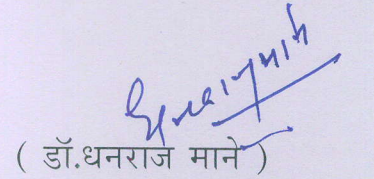 ( डॉ.धनराज माने )